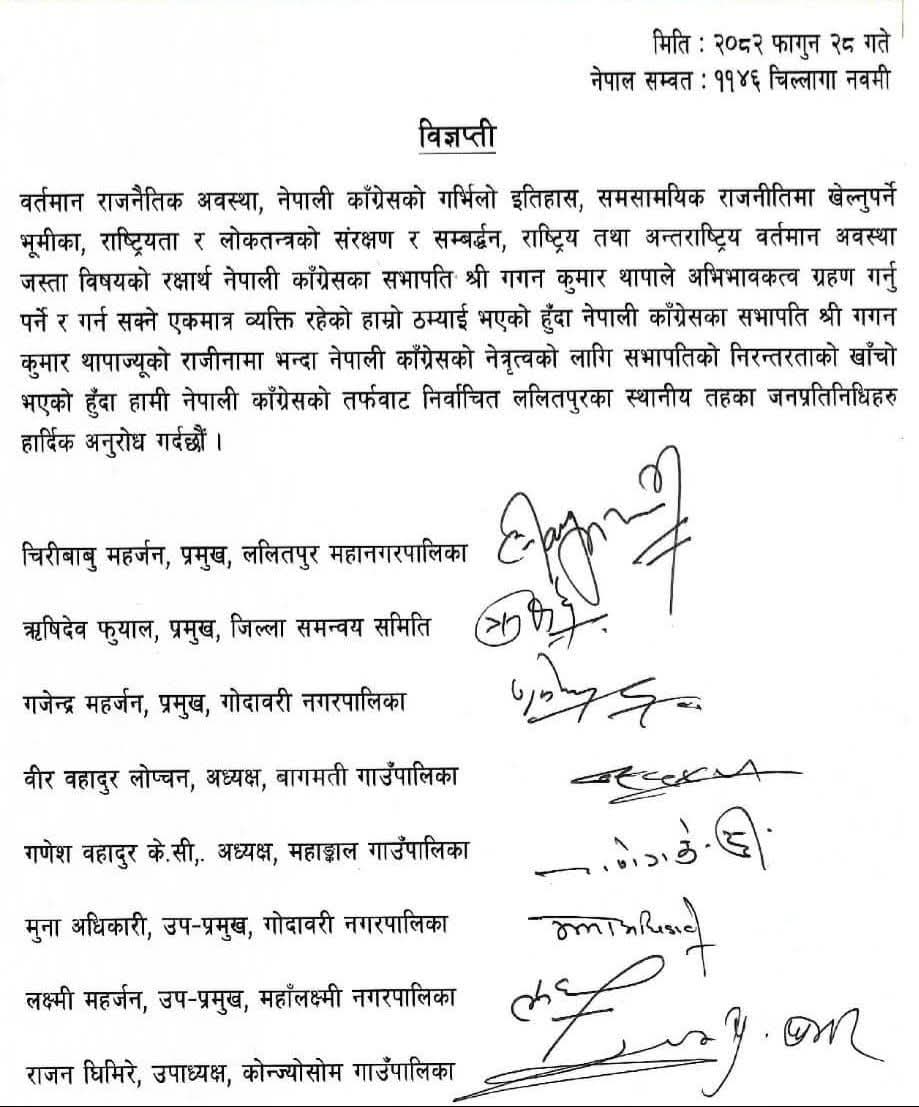 मिति : २०८२ फागुन २८ गते
नेपाल सम्वत : ११४६ चिल्लागा नवमी
विज्ञप्ती
वर्तमान राजनैतिक अवस्था, नेपाली काँग्रेसको गर्भिलो इतिहास, समसामयिक राजनीतिमा खेल्नुपर्ने
भूमीका, राष्ट्रियता र लोकतन्त्रको संरक्षण र सम्बर्द्धन, राष्ट्रिय तथा अन्तराष्ट्रिय वर्तमान अवस्था
जस्ता विषयको रक्षार्थ नेपाली काँग्रेसका सभापति श्री गगन कुमार थापाले अभिभावकत्व ग्रहण गर्नु
पर्ने र गर्न सक्ने एकमात्र व्यक्ति रहेको हाम्रो ठम्याई भएको हुँदा नेपाली काँग्रेसका सभापति श्री गगन
कुमार थापाज्यूको राजीनामा भन्दा नेपाली काँग्रेसको नेत्रृत्वको लागि सभापतिको निरन्तरताको खाँचो
भएको हुँदा हामी नेपाली काँग्रेसको तर्फवाट निर्वाचित ललितपुरका स्थानीय तहका जनप्रतिनिधिहरु
हार्दिक अनुरोध गर्दछौं ।
चिरीबाबु महर्जन, प्रमुख, ललितपुर महानगरपालिका
ऋषिदेव फुयाल, प्रमुख, जिल्ला समन्वय समिति
गजेन्द्र महर्जन, प्रमुख, गोदावरी नगरपालिका
वीर वहादुर लोप्चन, अध्यक्ष, वागमती गाउँपालिका
गणेश वहादुर के.सी,. अध्यक्ष, महाङ्काल गाउँपालिका
मुना अधिकारी, उप-प्रमुख, गोदावरी नगरपालिका
लक्ष्मी महर्जन, उप-प्रमुख, महाँलक्ष्मी नगरपालिका
राजन घिमिरे, उपाध्यक्ष, कोन्ज्योसोम गाउँपालिका